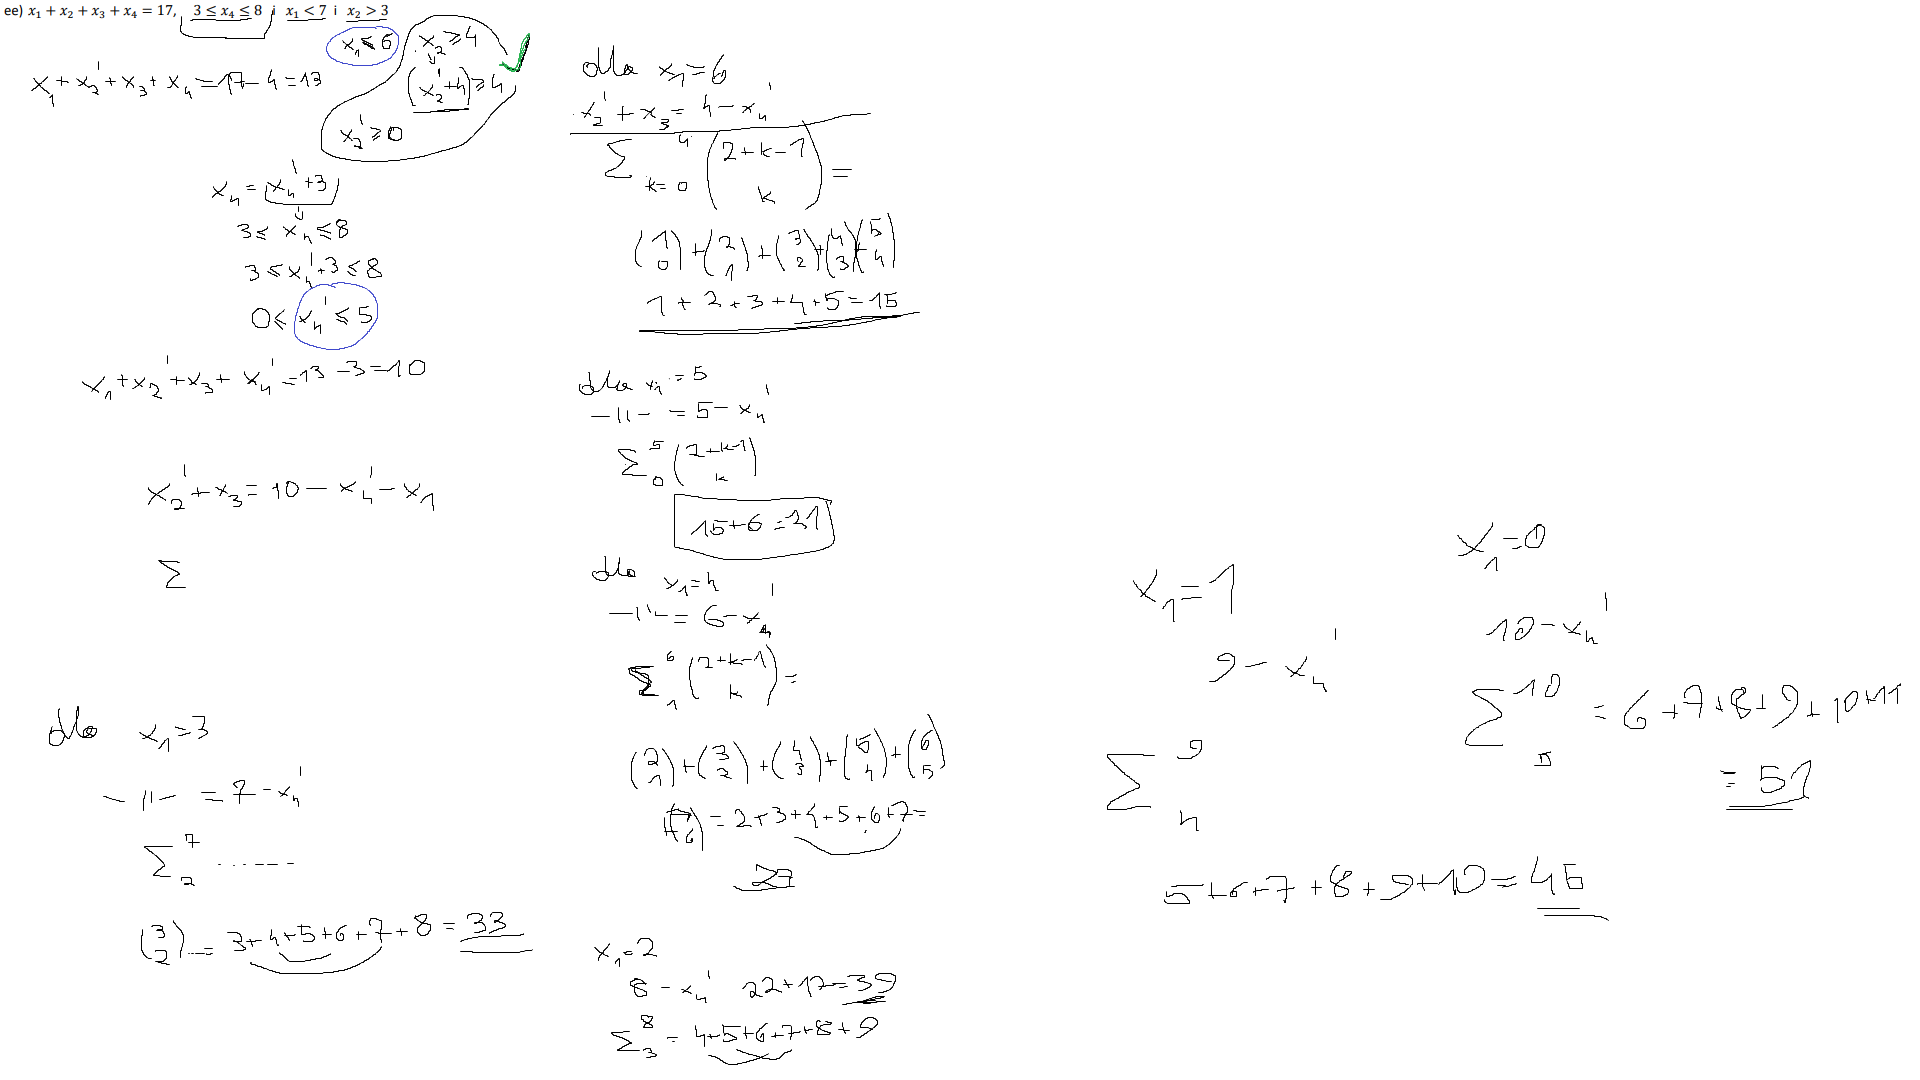 ee) x₁ + x₂ + x₃ + x₄ = 17, 3 ≤ x₄ ≤ 8 i x₁ < 7 i x₂ > 3
x₁ ≤ 6
x₂ ≥ 4
x₁ + x₂' + x₃ + x₄ = 17 - 4 = 13
(x₂' + 4) ≥ 4
x₂' ≥ 0
x₄ = x₄' + 3
3 ≤ x₄ ≤ 8
3 ≤ x₄' + 3 ≤ 8
0 ≤ x₄' ≤ 5
x₁ + x₂' + x₃ + x₄' = 13 - 3 = 10
x₂' + x₃ = 10 - x₄' - x₁
Σ
dla x₁ = 3
-||- = 7 - x₄'
Σ 7 2 ......
(3 2) = 3+4+5+6+7+8 = 33
dla x₁ = 6
x₂' + x₃ = 4 - x₄'
Σ 4 k=0 (2+k-1 k) =
(1 0) + (2 1) + (3 2) + (4 3) (5 4)
1 + 2 + 3 + 4 + 5 = 15
dla x₁ = 5
-||- = 5 - x₄'
Σ 5 0 (2+k-1 k)
15 + 6 = 21
dla x₁ = 4
-||- = 6 - x₄'
Σ 6 1 (2+k-1 k) =
(2 1) + (3 2) + (4 3) + (5 4) + (6 5)
(7 6) = 2+3+4+5+6+7 =
27
x₁ = 2
8 - x₄' 22+17=39
Σ 8 3 = 4+5+6+7+8+9
x₁ = 1
9 - x₄'
Σ 9 4
5+6+7+8+9+10 = 45
x₁ = 0
10 - x₄'
Σ 10 5 = 6+7+8+9+10+11
= 51